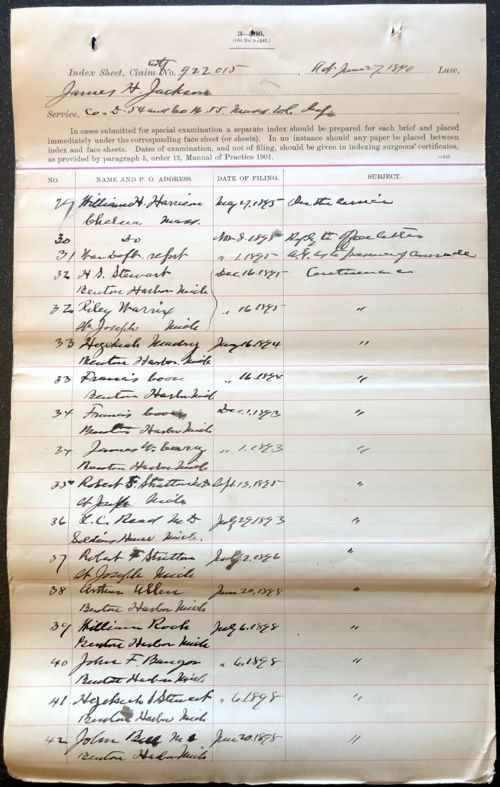 3—386.
Index Sheet, Claim No. 922015, Act June 27, 1890 Law,
James H. Jackson
Service, Co. D. 54 and Co. H. 55, Mass. Vol. Inf.
In cases submitted for special examination a separate index should be prepared for each brief and placed
immediately under the corresponding face sheet (or sheets). In no instance should any paper be placed between
index and face sheets. Dates of examination, and not of filing, should be given in indexing surgeons' certificates,
as provided by paragraph 5, order 12, Manual of Practice 1901.
NO. NAME AND P. O. ADDRESS. DATE OF FILING. SUBJECT.
29 William H. Harrison 1895
Chelsea Mass.
30 Do Nov. 8. 1895
31 War Dept. report " 1. 1895
32 H. S. Stewart Dec. 16. 1895 Continuance
Benton Harbor Mich
32 Riley Warrix " 16 1895 "
St. Joseph Mich
33 Hezekiah 16. 1894 "
Benton Harbor Mich
33 Francis Coon " 16. 1894 "
Benton Harbor Mich
34 Francis Coon Dec. 1. 1893 "
Benton Harbor Mich
34 James W. " 1. 1893 "
Benton Harbor Mich
35 Robert F. Stratton M D Sept. 13. 1895 "
St Joseph Mich
36 L. C. Read M D July 29 1893 "
Soldiers Home Mich.
37 Robert F Stratton 2. 1896 "
St. Joseph Mich
38 Arthur Allen June 20, 1898 "
Benton Harbor Mich
39 William Rook July 6. 1898 "
Benton Harbor Mich
40 John F. " 6. 1898 "
Benton Harbor Mich
41 Hezekiah Stewart " 6. 1898 "
Benton Harbor Mich
42 John Bell M D June 20. 1898 "
Benton Harbor Mich